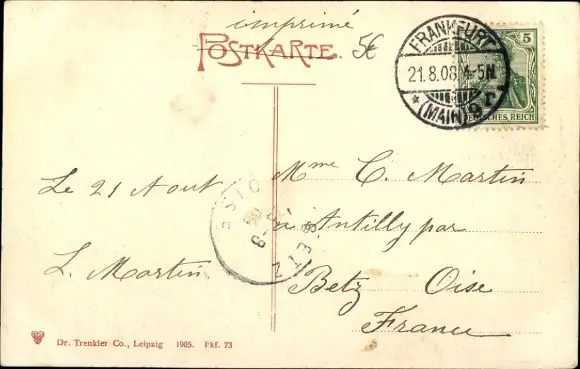 imprimé
POSTKARTE.
5€
FRANKFURT
21.8.08.4-5N.
* (MAIN) 9
5
DEUTSCHES REICH
Le 21 Aout
L. Martin
Mme C. Martin
à Antilly par
Betz Oise
France
BETZ
OISE
Dr. Trenkler Co., Leipzig 1905. Fkf. 73